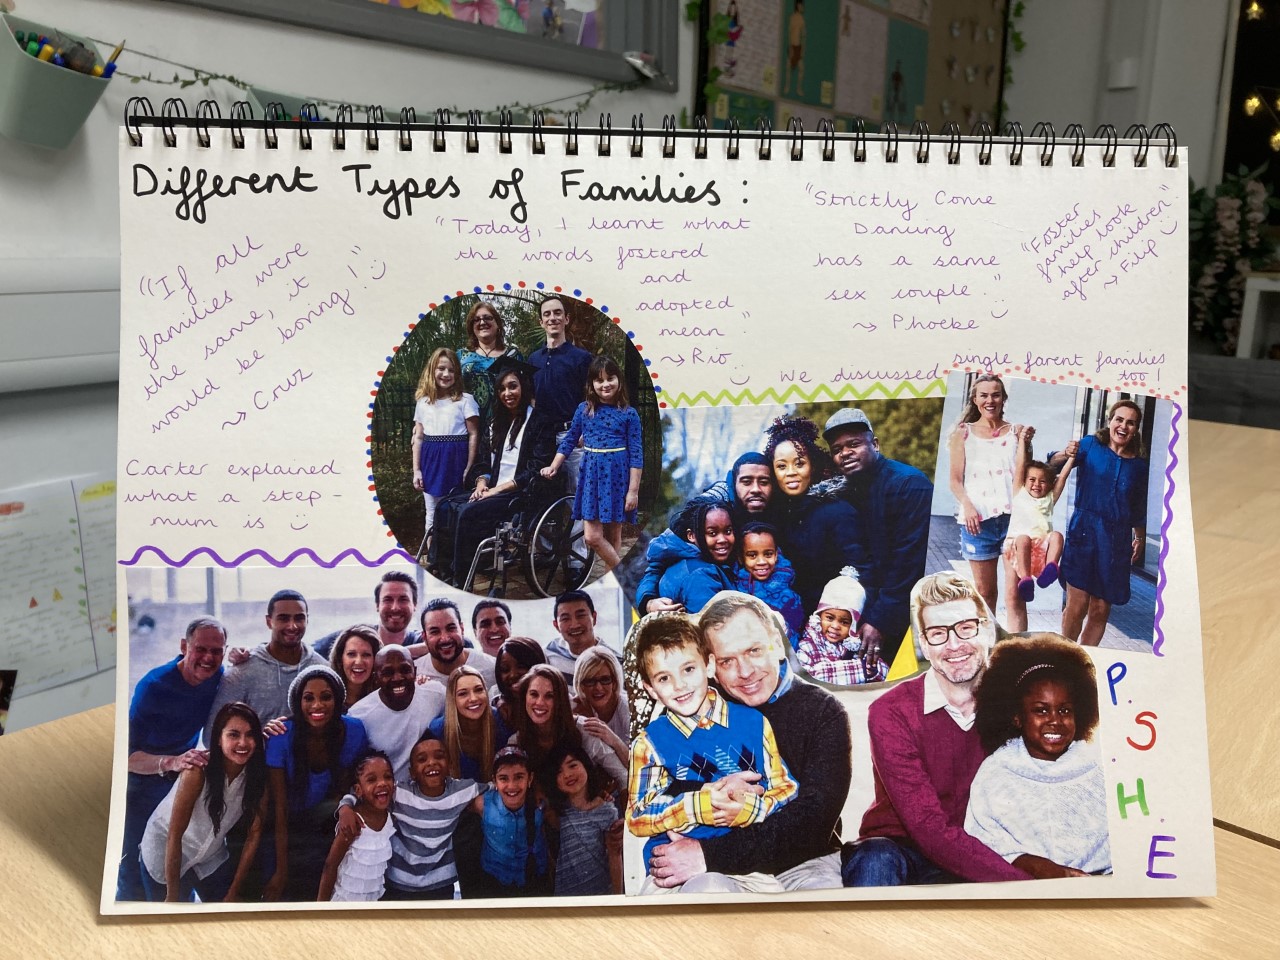 Different Types of Families:
"If all
families were
the same, it
would be boring!"
~> Cruz
"Today, I learnt what
the words fostered
and
adopted
mean."
~> Rio
"Strictly Come
Dancing
has a same
sex couple."
~> Phoebe
"Foster
families
help look
after children"
~> Filip
We discussed single parent families
too!
Carter explained
what a step-
mum is
P.
S.
H.
E